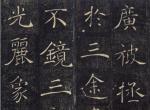 廣被拯
於三
不鏡三
光麗象